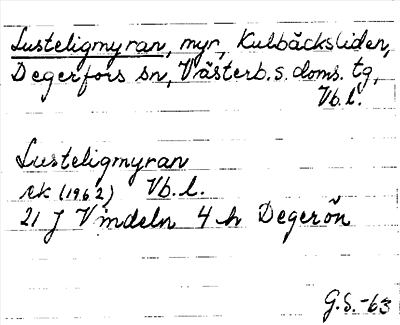 Lusteligmyran, myr, Kulbäcksliden,
Degerfors sn, Västerb. s. doms. tg,
Vb. l.
Lusteligmyran
ek (1962) Vb. l.
21 J Vindeln 4 h Degerön
G.S.-63